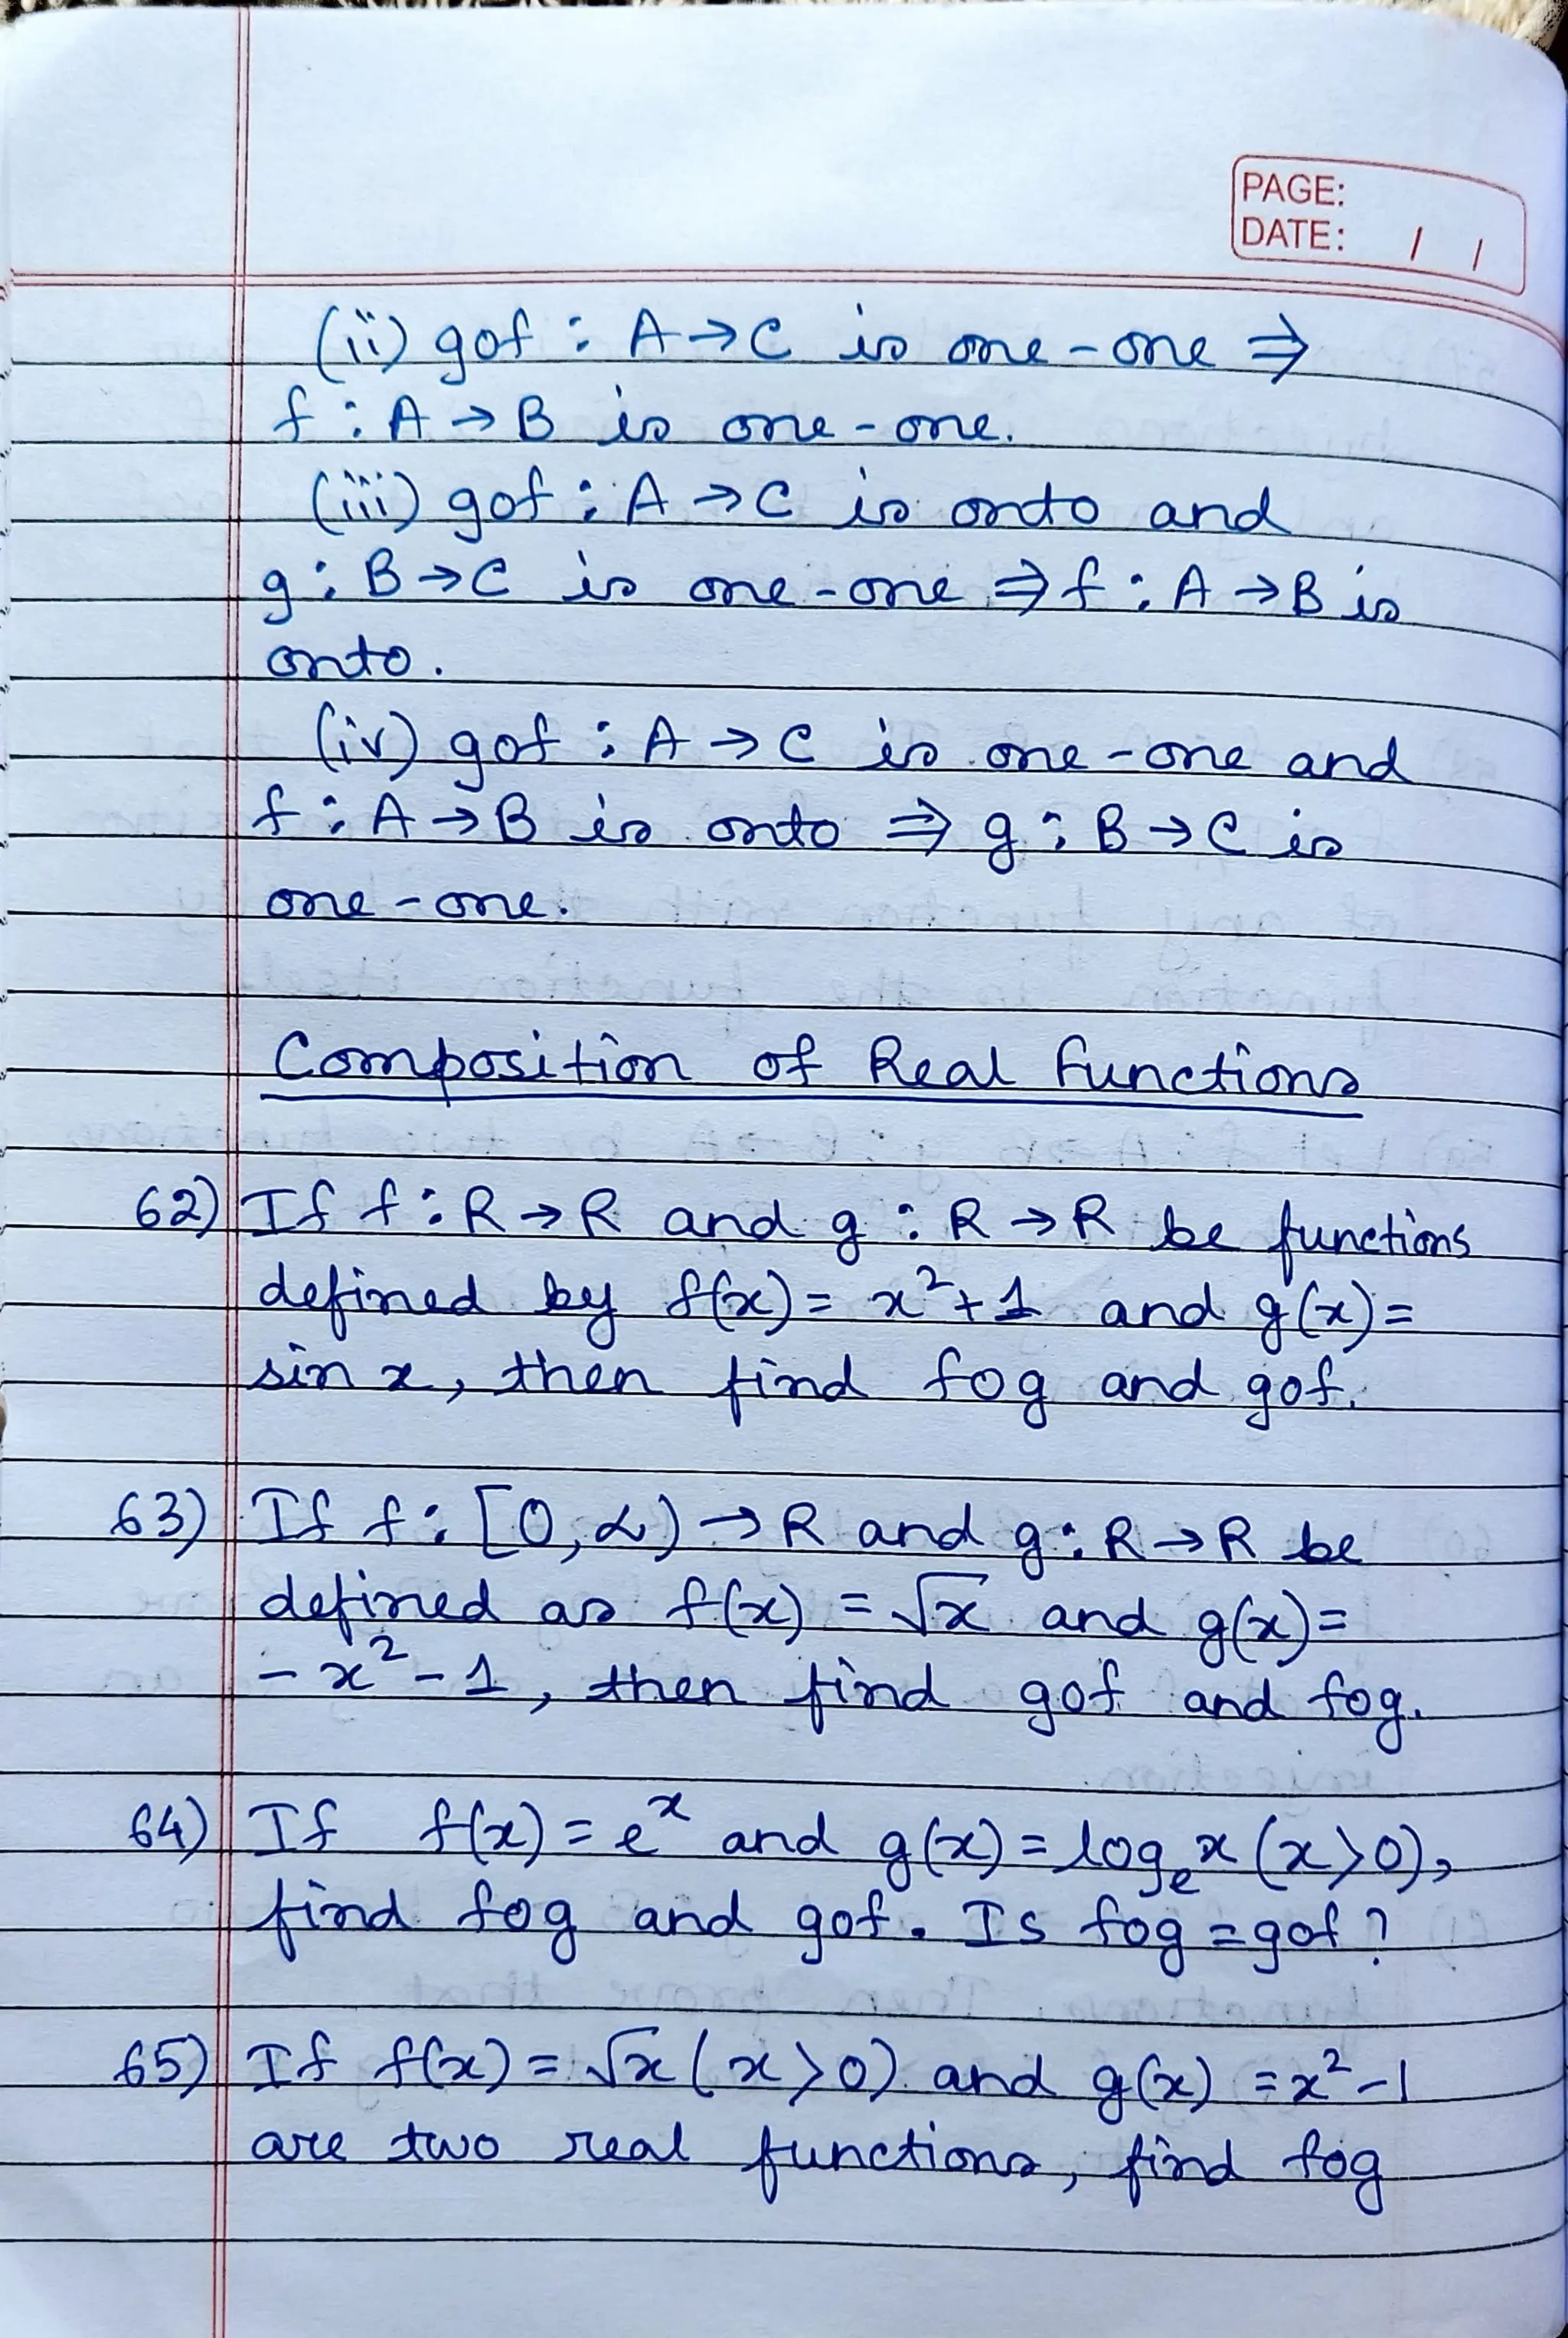 PAGE:
DATE: / /
(ii) gof : A → C is one-one ⇒
f : A → B is one-one.
(iii) gof : A → C is onto and
g : B → C is one-one ⇒ f : A → B is
onto.
(iv) gof : A → C is one-one and
f : A → B is onto ⇒ g : B → C is
one-one.
Composition of Real Functions
62) If f : R → R and g : R → R be functions
defined by f(x) = x² + 1 and g(x) =
sin x, then find fog and gof.
63) If f : [0, ∝) → R and g : R → R be
defined as f(x) = √x and g(x) =
- x² - 1, then find gof and fog.
64) If f(x) = eˣ and g(x) = logₑ x (x > 0),
find fog and gof. Is fog = gof ?
65) If f(x) = √x (x > 0) and g(x) = x² - 1
are two real functions, find fog